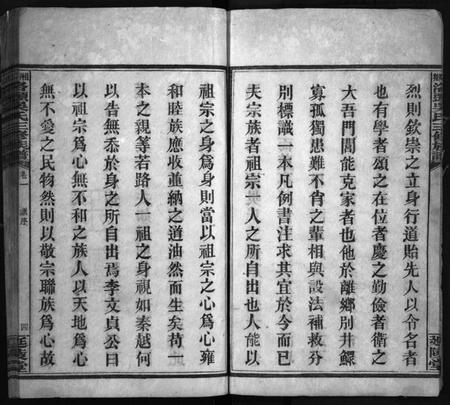 烈則欽崇之立身行道貽先人以令名者
也有學者頌之在位者慶之勤儉者衛之
大吾門閭能克家者也他於離鄉別井鰥
寡孤獨患難不肖之輩相與設法補救分
別標識一本凡例書注求其宜於今而已
夫宗族者祖宗一人之所自出也人能以
祖宗之身則當以祖宗之心為心雍
和睦族應收並納之道油然而生矣苟一
本之親等若路人一祖之身視如秦越何
以告無忝於身之所自出焉李文貞公曰
以祖宗為心無不和之族人以天地為心
無不愛之民物然則以敬宗聯族為心故
氏三修族譜
卷一
四
延陵堂
延陵堂